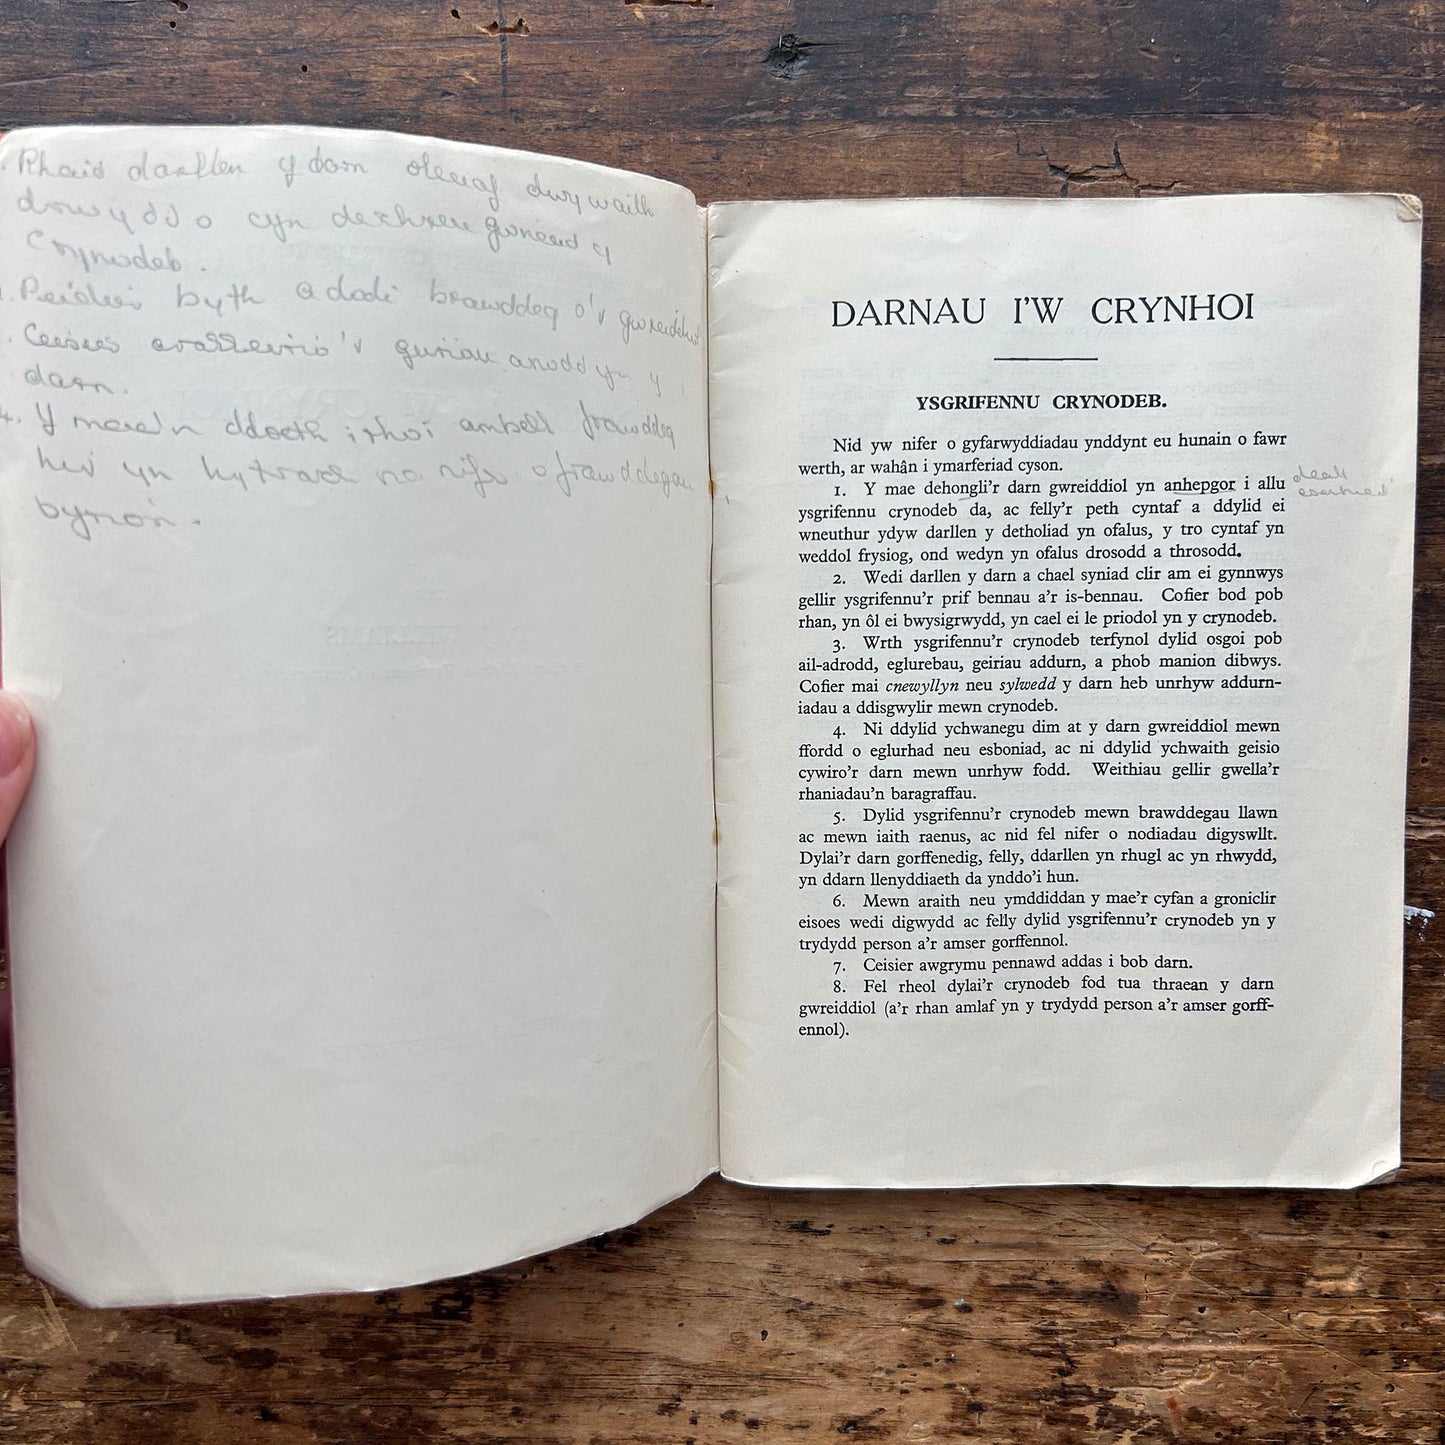 Rhaid darllen y darn oleuaf dwywaith
drwyddo cyn dechreu gwneud y
Crynodeb.
Peidio byth a dodi brawddeg o'r
Ceisio aralleirio'r geiriau anodd yn y
darn.
4. Y mae'n ddoeth i rhoi ambell frawddeg
hir yn hytrach na nifer o frawddegau
byrion.
DARNAU I'W CRYNHOI
YSGRIFENNU CRYNODEB.
Nid yw nifer o gyfarwyddiadau ynddynt eu hunain o fawr
werth, ar wahân i ymarferiad cyson.
1. Y mae dehongli'r darn gwreiddiol yn anhepgor i allu
ysgrifennu crynodeb da, ac felly'r peth cyntaf a ddylid ei
wneuthur ydyw darllen y detholiad yn ofalus, y tro cyntaf yn
weddol frysiog, ond wedyn yn ofalus drosodd a throsodd.
2. Wedi darllen y darn a chael syniad clir am ei gynnwys
gellir ysgrifennu'r prif bennau a'r is-bennau. Cofier bod pob
rhan, yn ôl ei bwysigrwydd, yn cael ei le priodol yn y crynodeb.
3. Wrth ysgrifennu'r crynodeb terfynol dylid osgoi pob
ail-adrodd, eglurebau, geiriau addurn, a phob manion dibwys.
Cofier mai cnewyllyn neu sylwedd y darn heb unrhyw addurn-
iadau a ddisgwylir mewn crynodeb.
4. Ni ddylid ychwanegu dim at y darn gwreiddiol mewn
ffordd o eglurhad neu esboniad, ac ni ddylid ychwaith geisio
cywiro'r darn mewn unrhyw fodd. Weithiau gellir gwella'r
rhaniadau'n baragraffau.
5. Dylid ysgrifennu'r crynodeb mewn brawddegau llawn
ac mewn iaith raenus, ac nid fel nifer o nodiadau digyswllt.
Dylai'r darn gorffenedig, felly, ddarllen yn rhugl ac yn rhwydd,
yn ddarn llenyddiaeth da ynddo'i hun.
6. Mewn araith neu ymddiddan y mae'r cyfan a groniclir
eisoes wedi digwydd ac felly dylid ysgrifennu'r crynodeb yn y
trydydd person a'r amser gorffennol.
7. Ceisier awgrymu pennawd addas i bob darn.
8. Fel rheol dylai'r crynodeb fod tua thraean y darn
gwreiddiol (a'r rhan amlaf yn y trydydd person a'r amser gorff-
ennol).